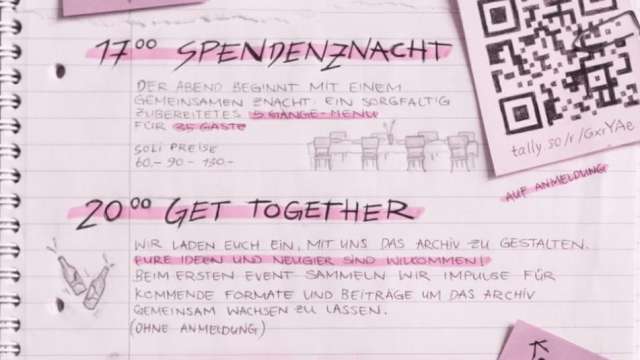 17⁰⁰ SPENDENZNACHT
DER ABEND BEGINNT MIT EINEM
GEMEINSAMEN ZNACHT: EIN SORGFÄLTIG
ZUBEREITETES 5 GÄNGE-MENU
FÜR 35 GÄSTE
SOLI PREISE
60.- 90.- 130.-
tally.so/r/GxrYAe
AUF ANMELDUNG
20⁰⁰ GET TOGETHER
WIR LADEN EUCH EIN, MIT UNS DAS ARCHIV ZU GESTALTEN.
EURE IDEEN UND NEUGIER SIND WILKOMMEN!
BEIM ERSTEN EVENT SAMMELN WIR IMPULSE FÜR
KOMMENDE FORMATE UND BEITRÄGE UM DAS ARCHIV
GEMEINSAM WACHSEN ZU LASSEN.
(OHNE ANMELDUNG)